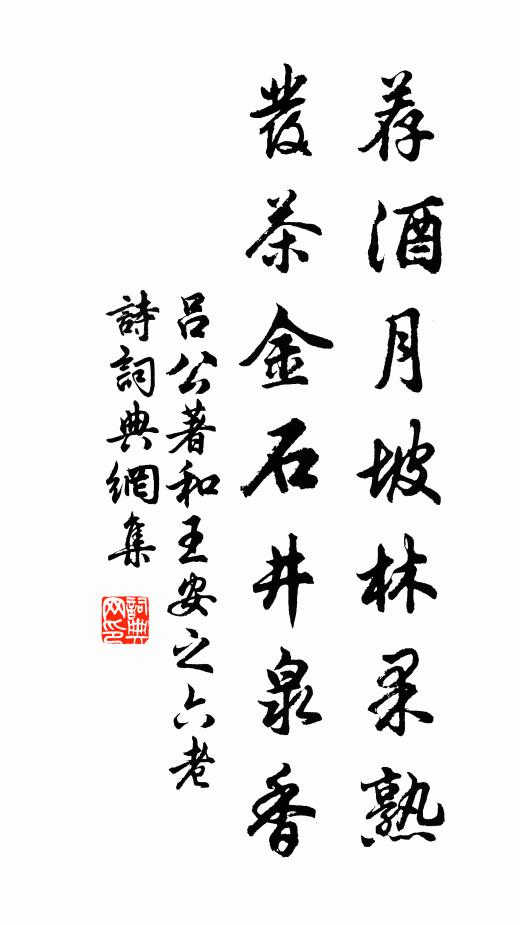 荐酒月坡林果熟
發茶金石井泉香
吕公著和王安之六老
詩詞典網集
詞典
网印